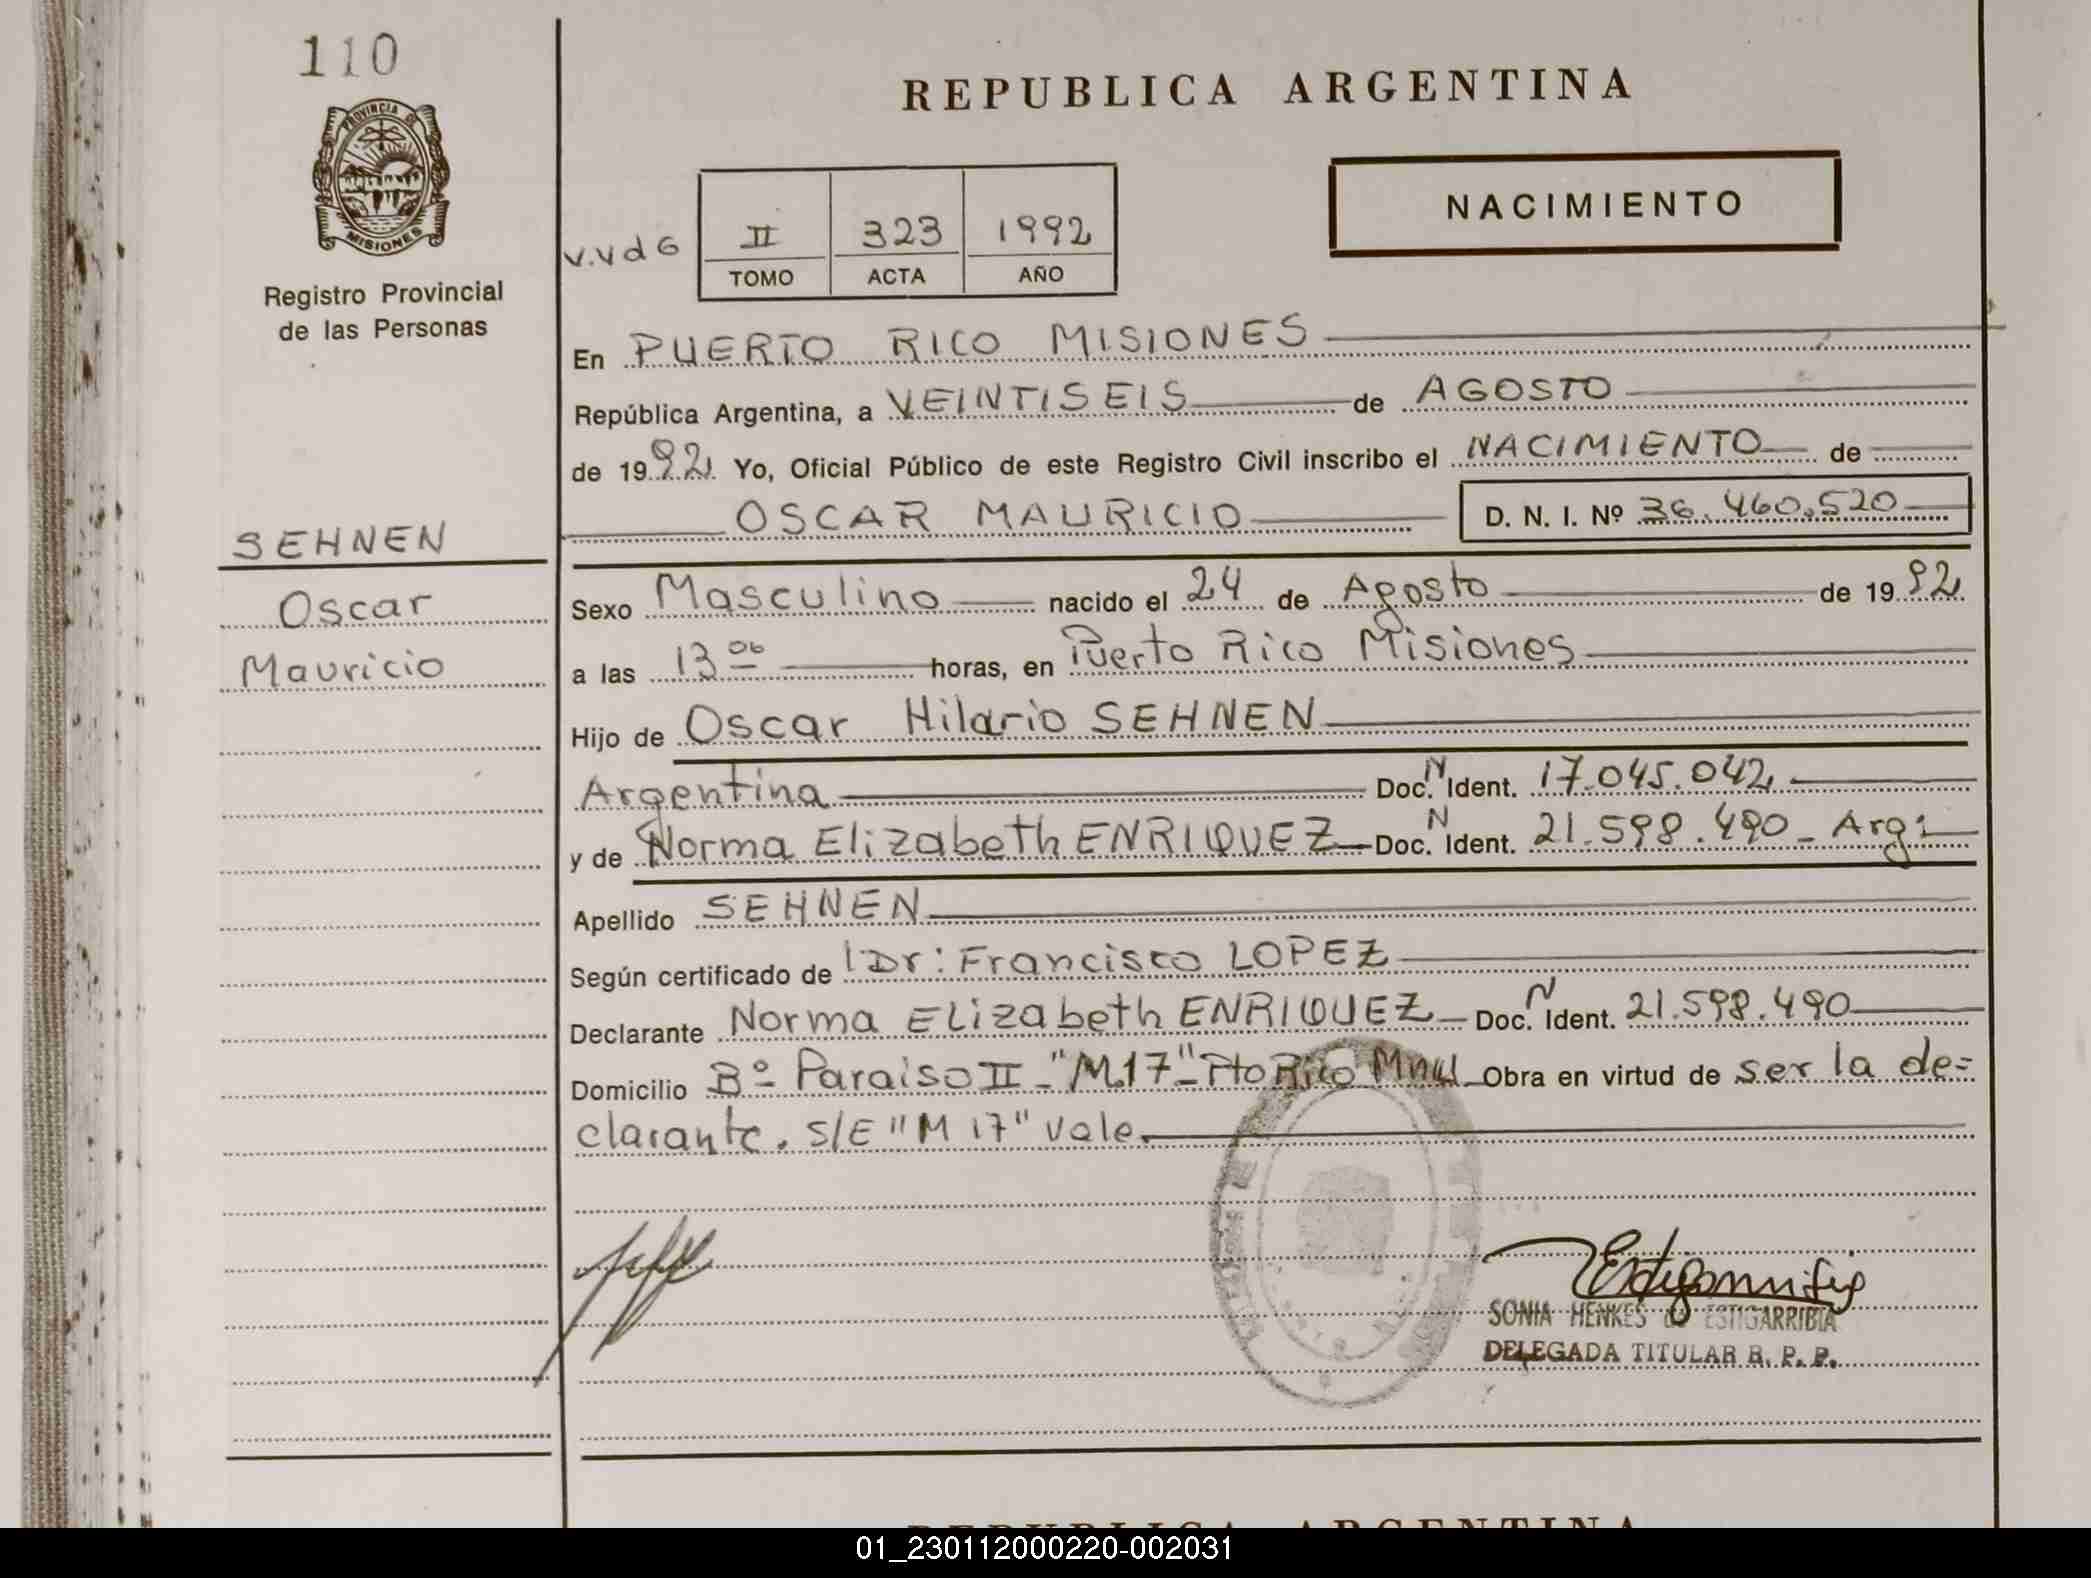 110
PROVINCIA DE
MISIONES
Registro Provincial
de las Personas
REPUBLICA ARGENTINA
NACIMIENTO
v.v d G
II 323 1992
TOMO ACTA AÑO
En PUERTO RICO MISIONES
República Argentina, a VEINTISEIS de AGOSTO
de 1992. Yo, Oficial Público de este Registro Civil inscribo el NACIMIENTO de
OSCAR MAURICIO D. N. I. Nº 36.460.520
SEHNEN
Oscar
Mauricio
Sexo Masculino nacido el 24 de Agosto de 1992
a las 13 06 horas, en Puerto Rico Misiones
Hijo de Oscar Hilario SEHNEN
Argentina Doc. N Ident. 17.045.042
y de Norma Elizabeth ENRIQUEZ Doc. N Ident. 21.598.490 - Arg:
Apellido SEHNEN
Según certificado de Dr: Francisco LOPEZ
Declarante Norma Elizabeth ENRIQUEZ Doc. N Ident. 21.598.490
Domicilio Bº Paraiso II - "M.17" - Pto Rico Mnes Obra en virtud de ser la de=
clarante. S/E "M 17" Vale.
SONIA HENKES de ESTIGARRIBIA
DELEGADA TITULAR R. P. P.
REPUBLICA ARGENTINA
01_230112000220-002031